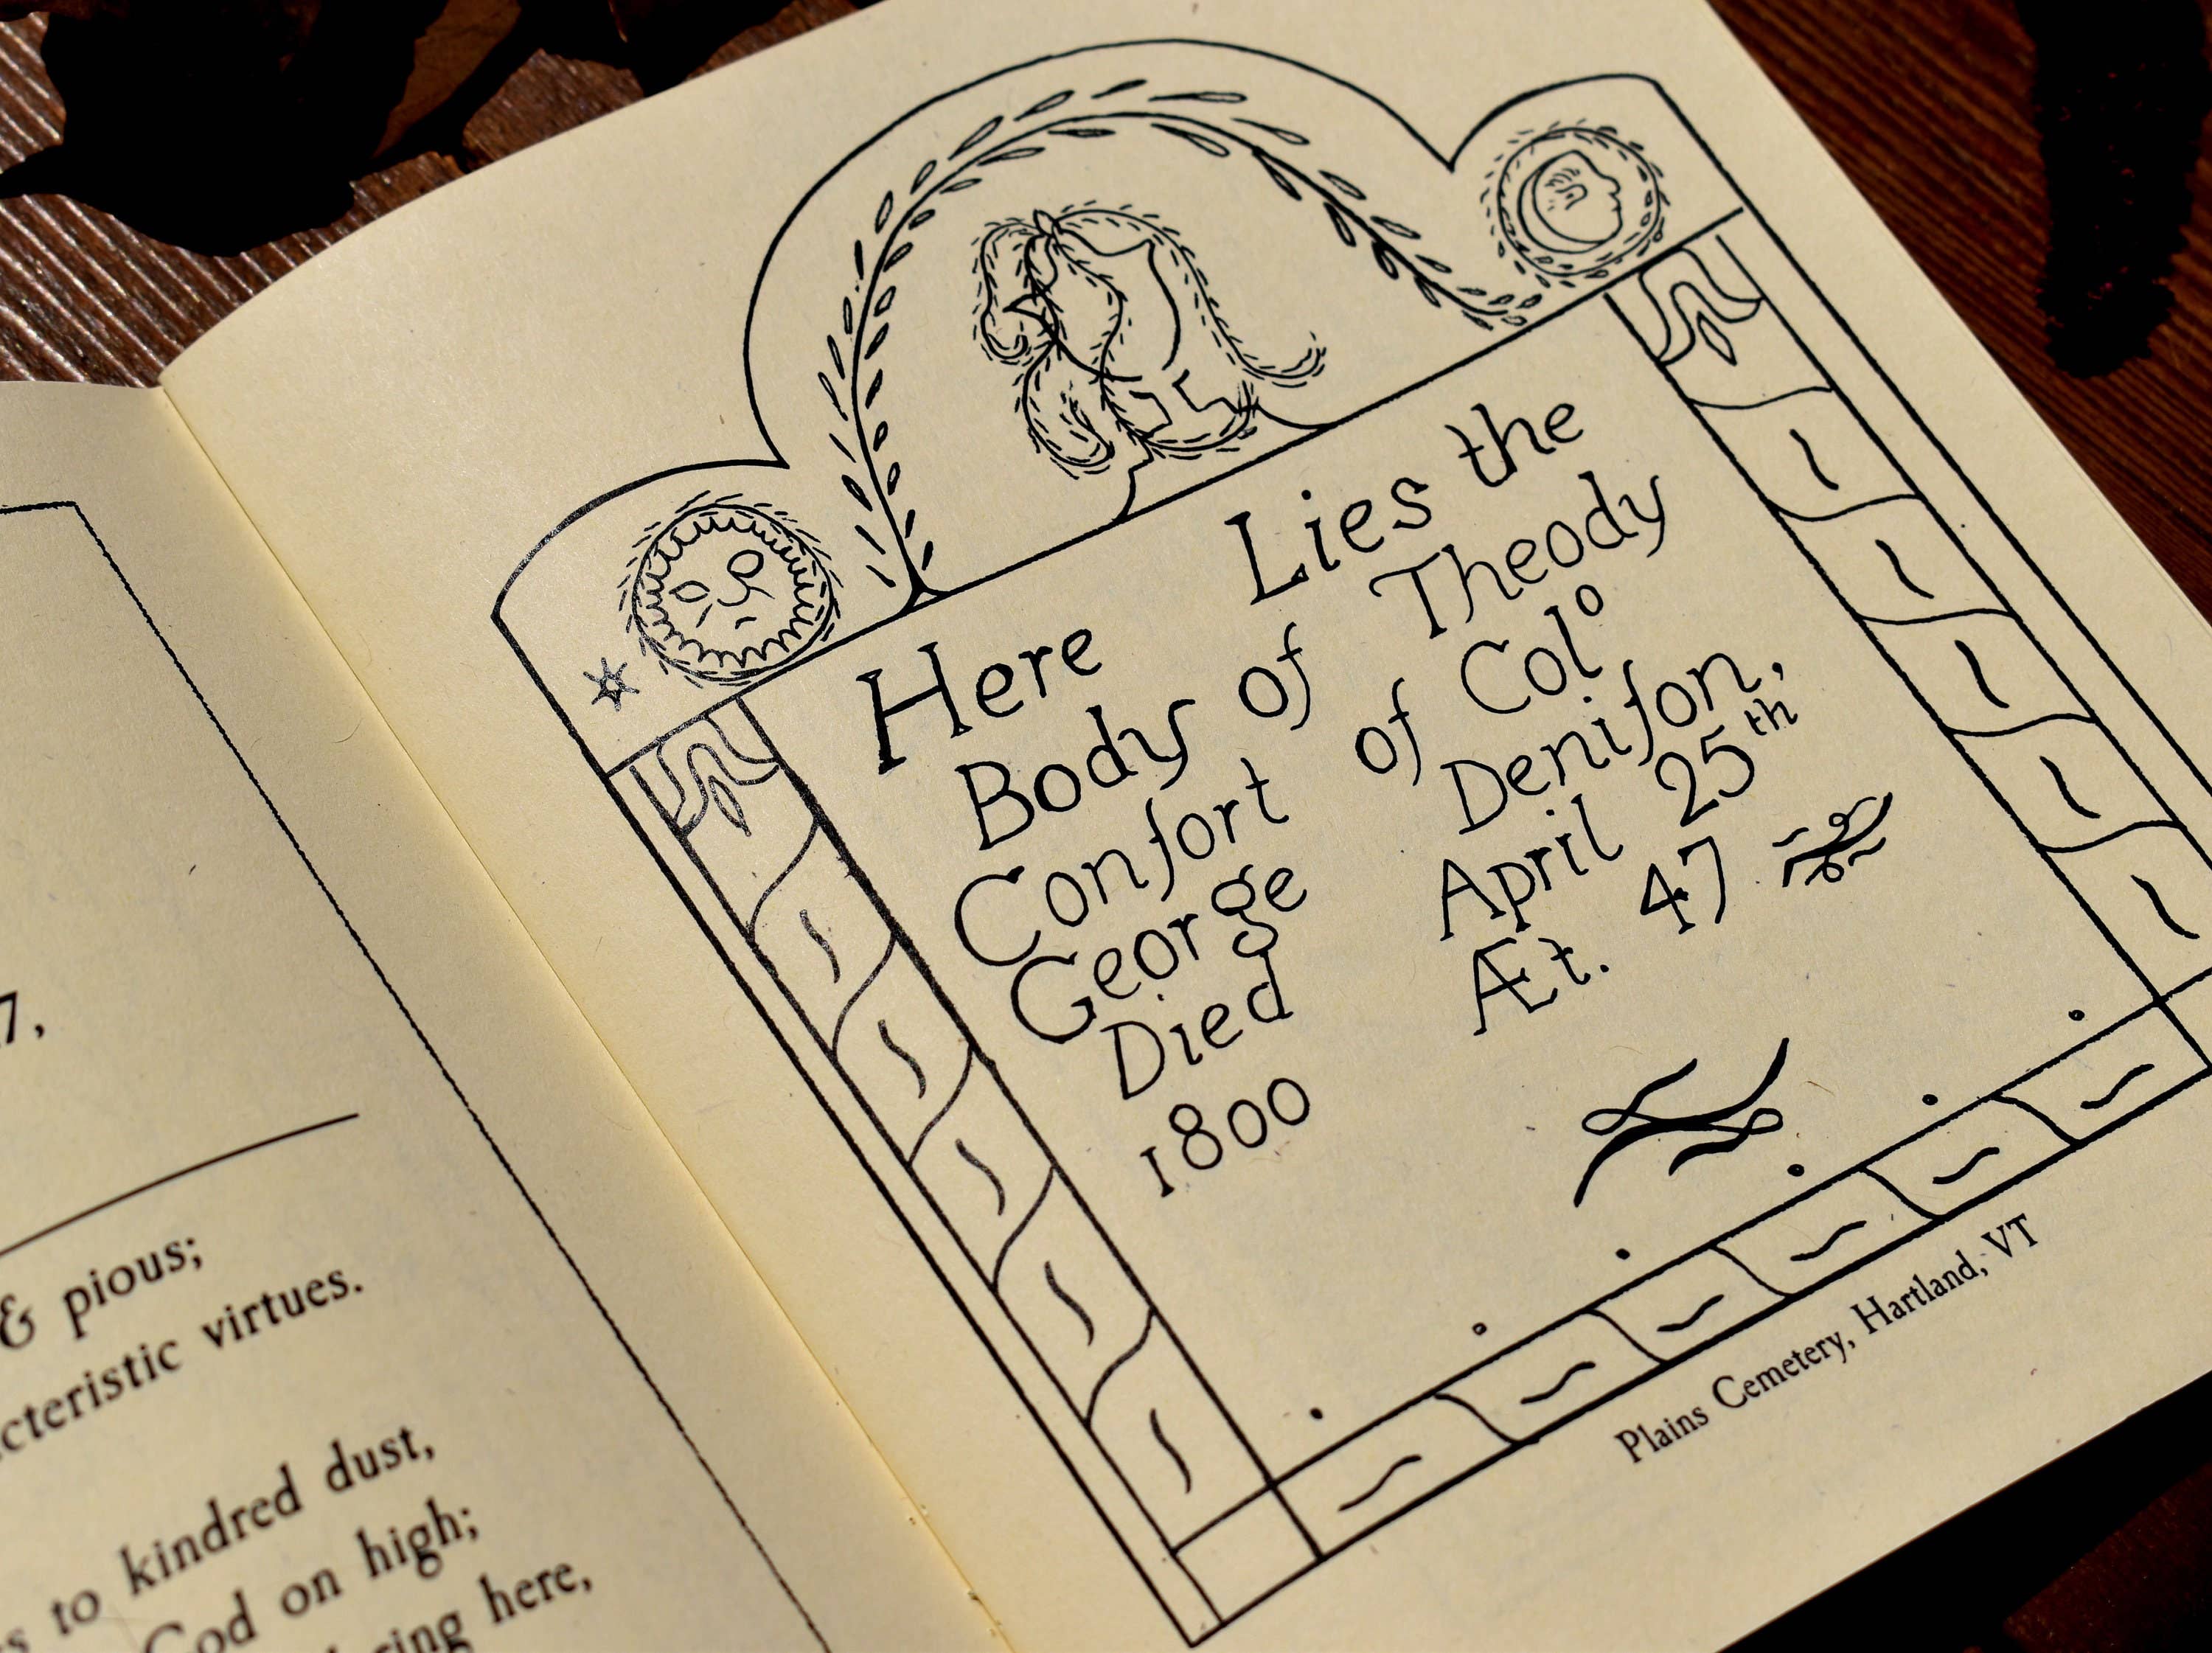 7,
& pious;
cteristic virtues.
s to kindred dust,
God on high;
ring here,
Here Lies the
Body of Theody
Conſort of Colº
George Deniſon,
Died April 25th
1800 Æt. 47
Plains Cemetery, Hartland, VT